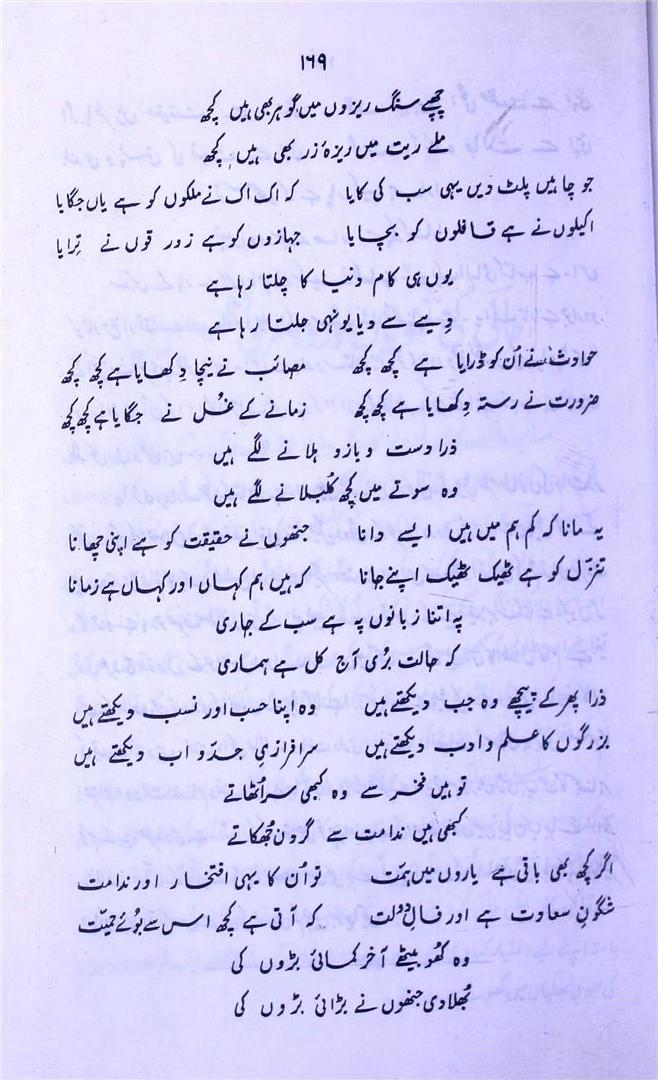 ۱۶۹
چھپے سنگ ریزوں میں گوہر بھی ہیں کچھ
ملے ریت میں ریزۂ زر بھی ہیں کچھ
جو چاہیں پلٹ دیں یہی سب کی کایا کہ اک اک نے ملکوں کو ہے یاں جگایا
اکیلوں نے ہے قافلوں کو بچایا جہازوں کو ہے زورقوں نے تِرایا
یوں ہی کام دنیا کا چلتا رہا ہے
دِیے سے دیا یونہی جلتا رہا ہے
حوادث نے اُن کو ڈرایا ہے کچھ کچھ مصائب نے نیچا دِکھایا ہے کچھ کچھ
ضرورت نے رستہ دِکھایا ہے کچھ کچھ زمانے کے غُل نے جگایا ہے کچھ کچھ
ذرا دست و بازو ہلانے لگے ہیں
وہ سوتے میں کچھ کُلبلانے لگے ہیں
یہ مانا کہ کم ہم میں ہیں ایسے دانا جنھوں نے حقیقت کو ہے اپنی چھانا
تنزّل کو ہے ٹھیک ٹھیک اپنے جانا کہ ہیں ہم کہاں اور کہاں ہے زمانا
پہ اتنا زبانوں پہ ہے سب کے جاری
کہ حالت بُری آج کل ہے ہماری
ذرا پھر کے پیچھے وہ جب دیکھتے ہیں وہ اپنا حسب اور نسب دیکھتے ہیں
بزرگوں کا علم و ادب دیکھتے ہیں سرافرازیِ جد و اب دیکھتے ہیں
تو ہیں فخر سے وہ کبھی سر اُٹھاتے
کبھی ہیں ندامت سے گردن جُھکاتے
اگر کچھ بھی باقی ہے یاروں میں ہمّت تو اُن کا یہی افتخار اور ندامت
شگونِ سعادت ہے اور فالِ دولت کہ آتی ہے کچھ اس سے بُوئے حمیّت
وہ کھو بیٹھے آخر کمائی بڑوں کی
بُھلا دی جنھوں نے بڑائی بڑوں کی